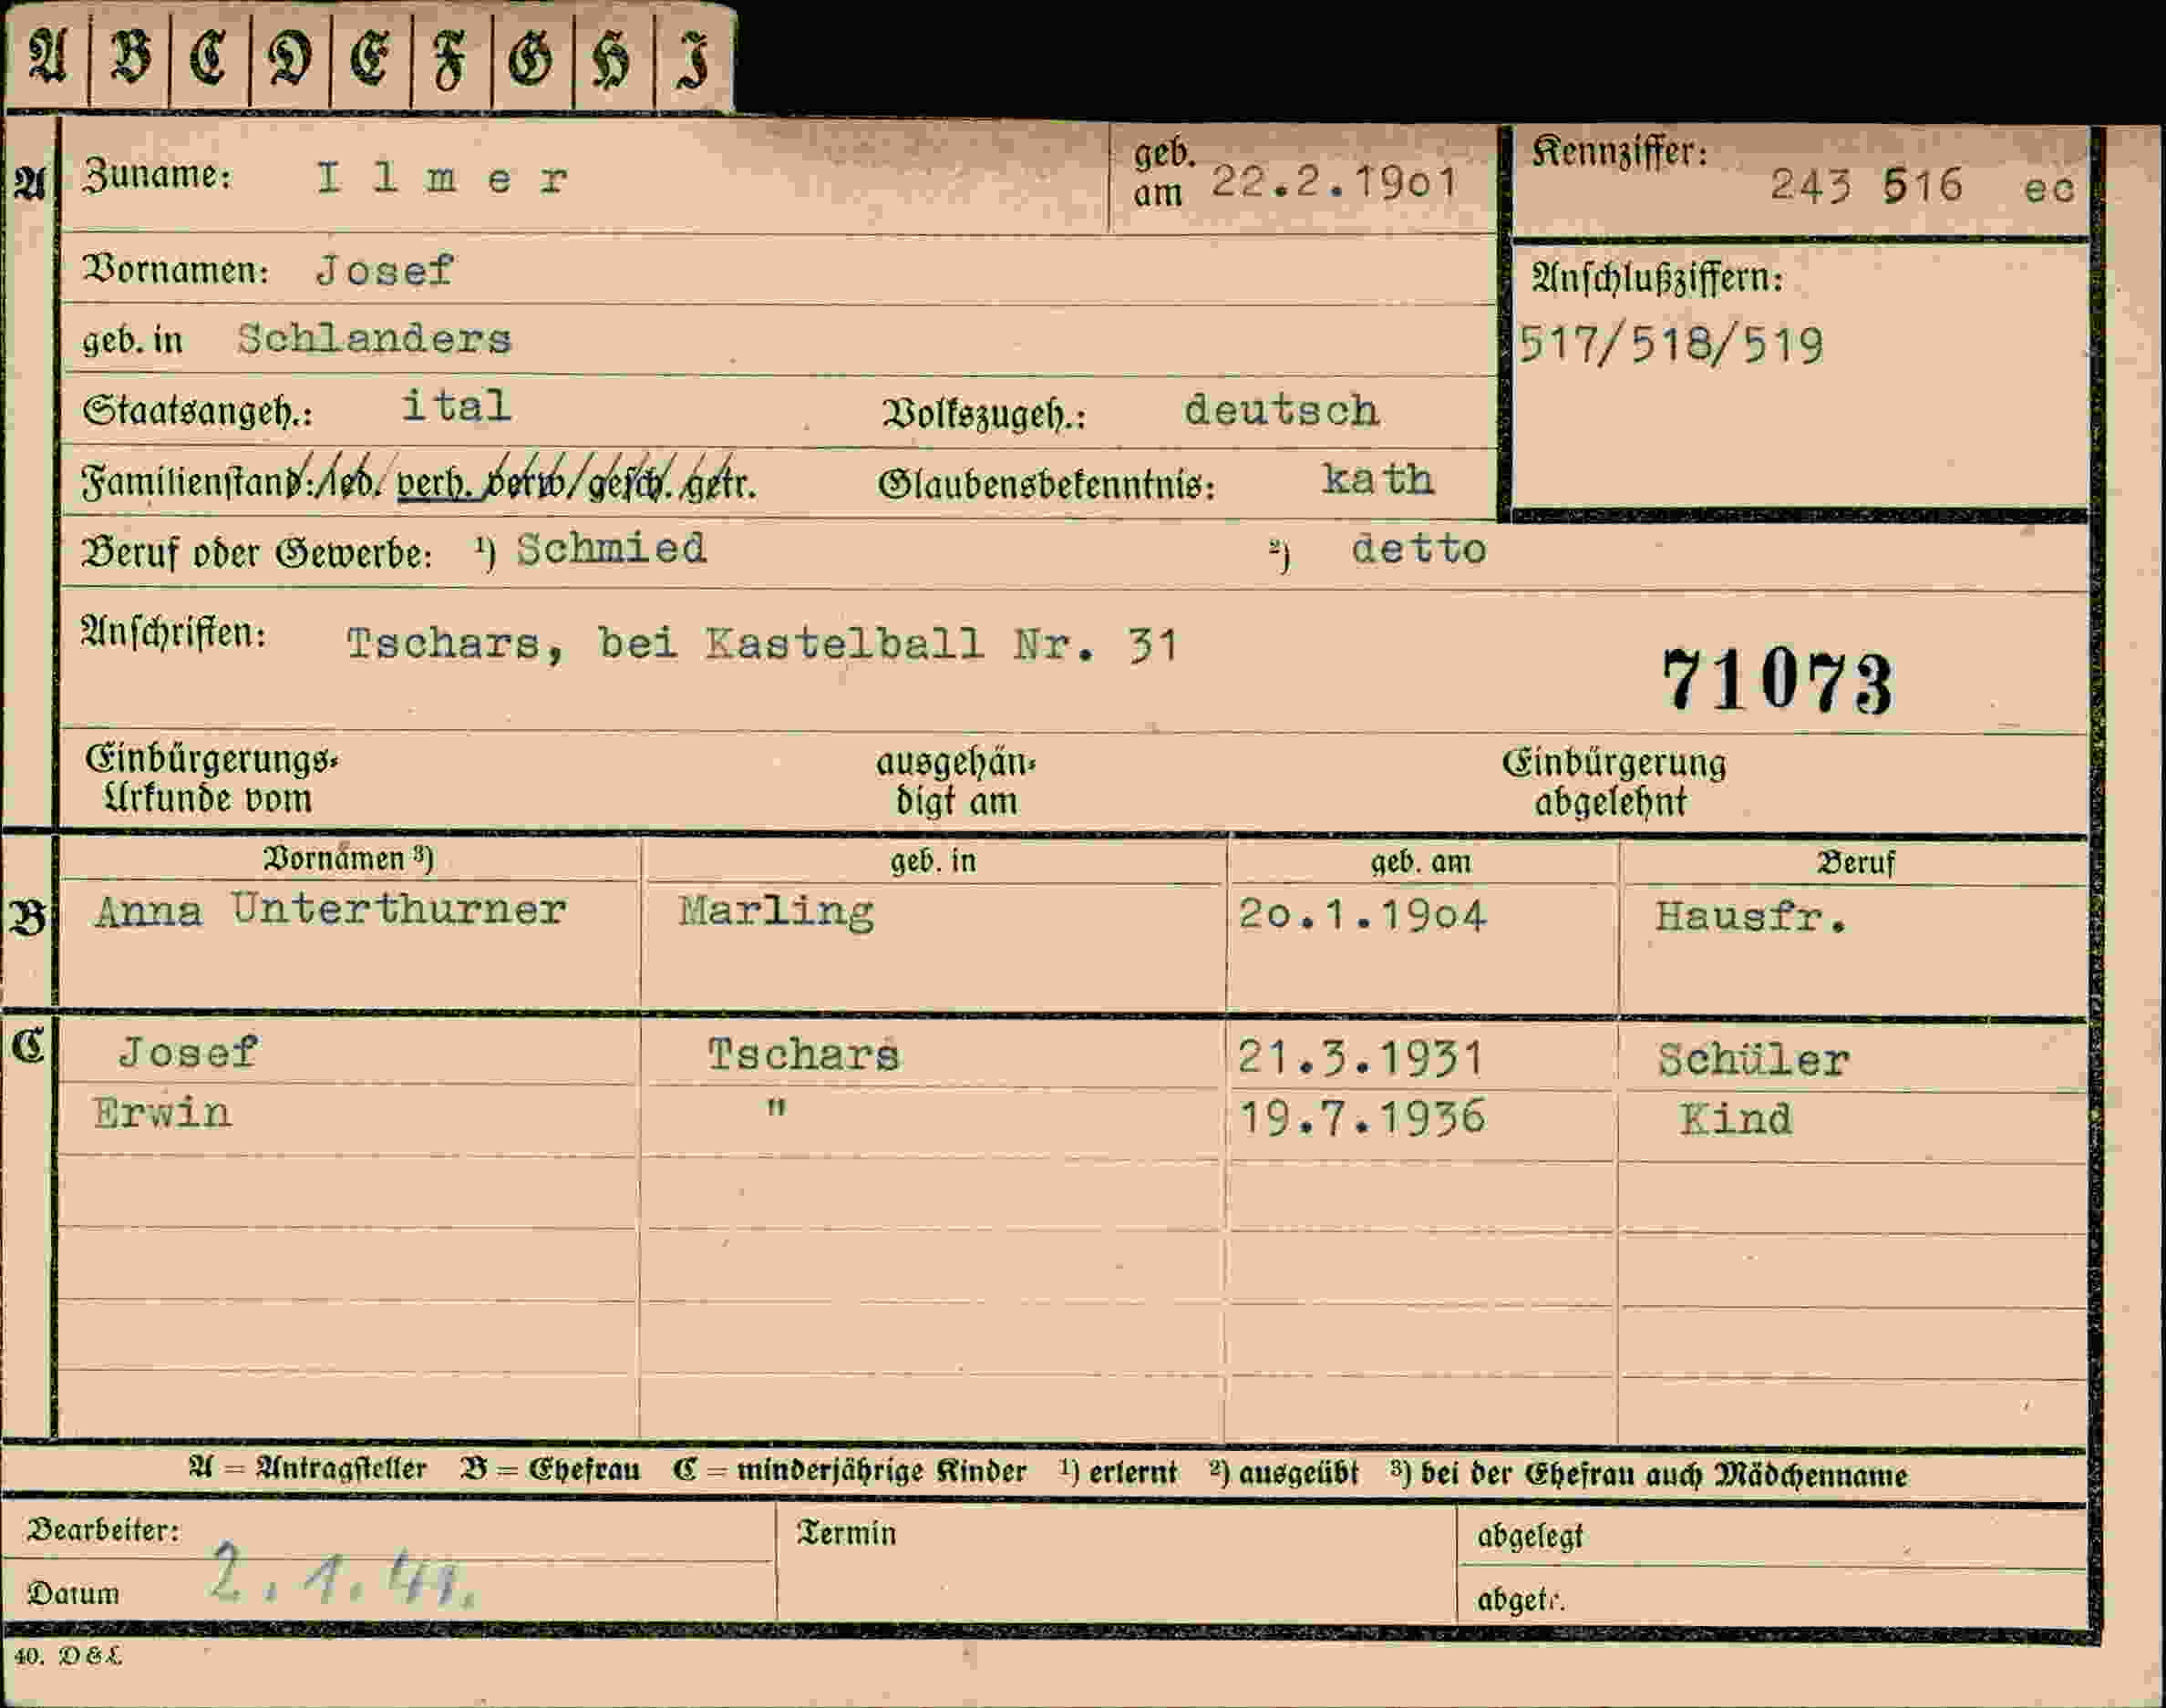 A B C D E F G H I
A Zuname: Ilmer geb. am 22.2.19o1 Kennziffer: 243 516 ec
Vornamen: Josef
Anschlußziffern:
geb. in Schlanders 517/518/519
Staatsangeh.: ital Volkszugeh.: deutsch
Familienstand: led. verh. verw. gesch. getr. Glaubensbekenntnis: kath
Beruf oder Gewerbe: ¹) Schmied ²) detto
Anschriften: Tschars, bei Kastelball Nr. 31
71073
Einbürgerungs- ausgehän- Einbürgerung
Urkunde vom digt am abgelehnt
Vornamen ³) geb. in geb. am Beruf
B Anna Unterthurner Marling 2o.1.19o4 Hausfr.
C Josef Tschars 21.3.1931 Schüler
Erwin " 19.7.1936 Kind
A = Antragsteller B = Ehefrau C = minderjährige Kinder ¹) erlernt ²) ausgeübt ³) bei der Ehefrau auch Mädchenname
Bearbeiter: Termin abgelegt
Datum 2.1.41. abgetr.
40. D & L